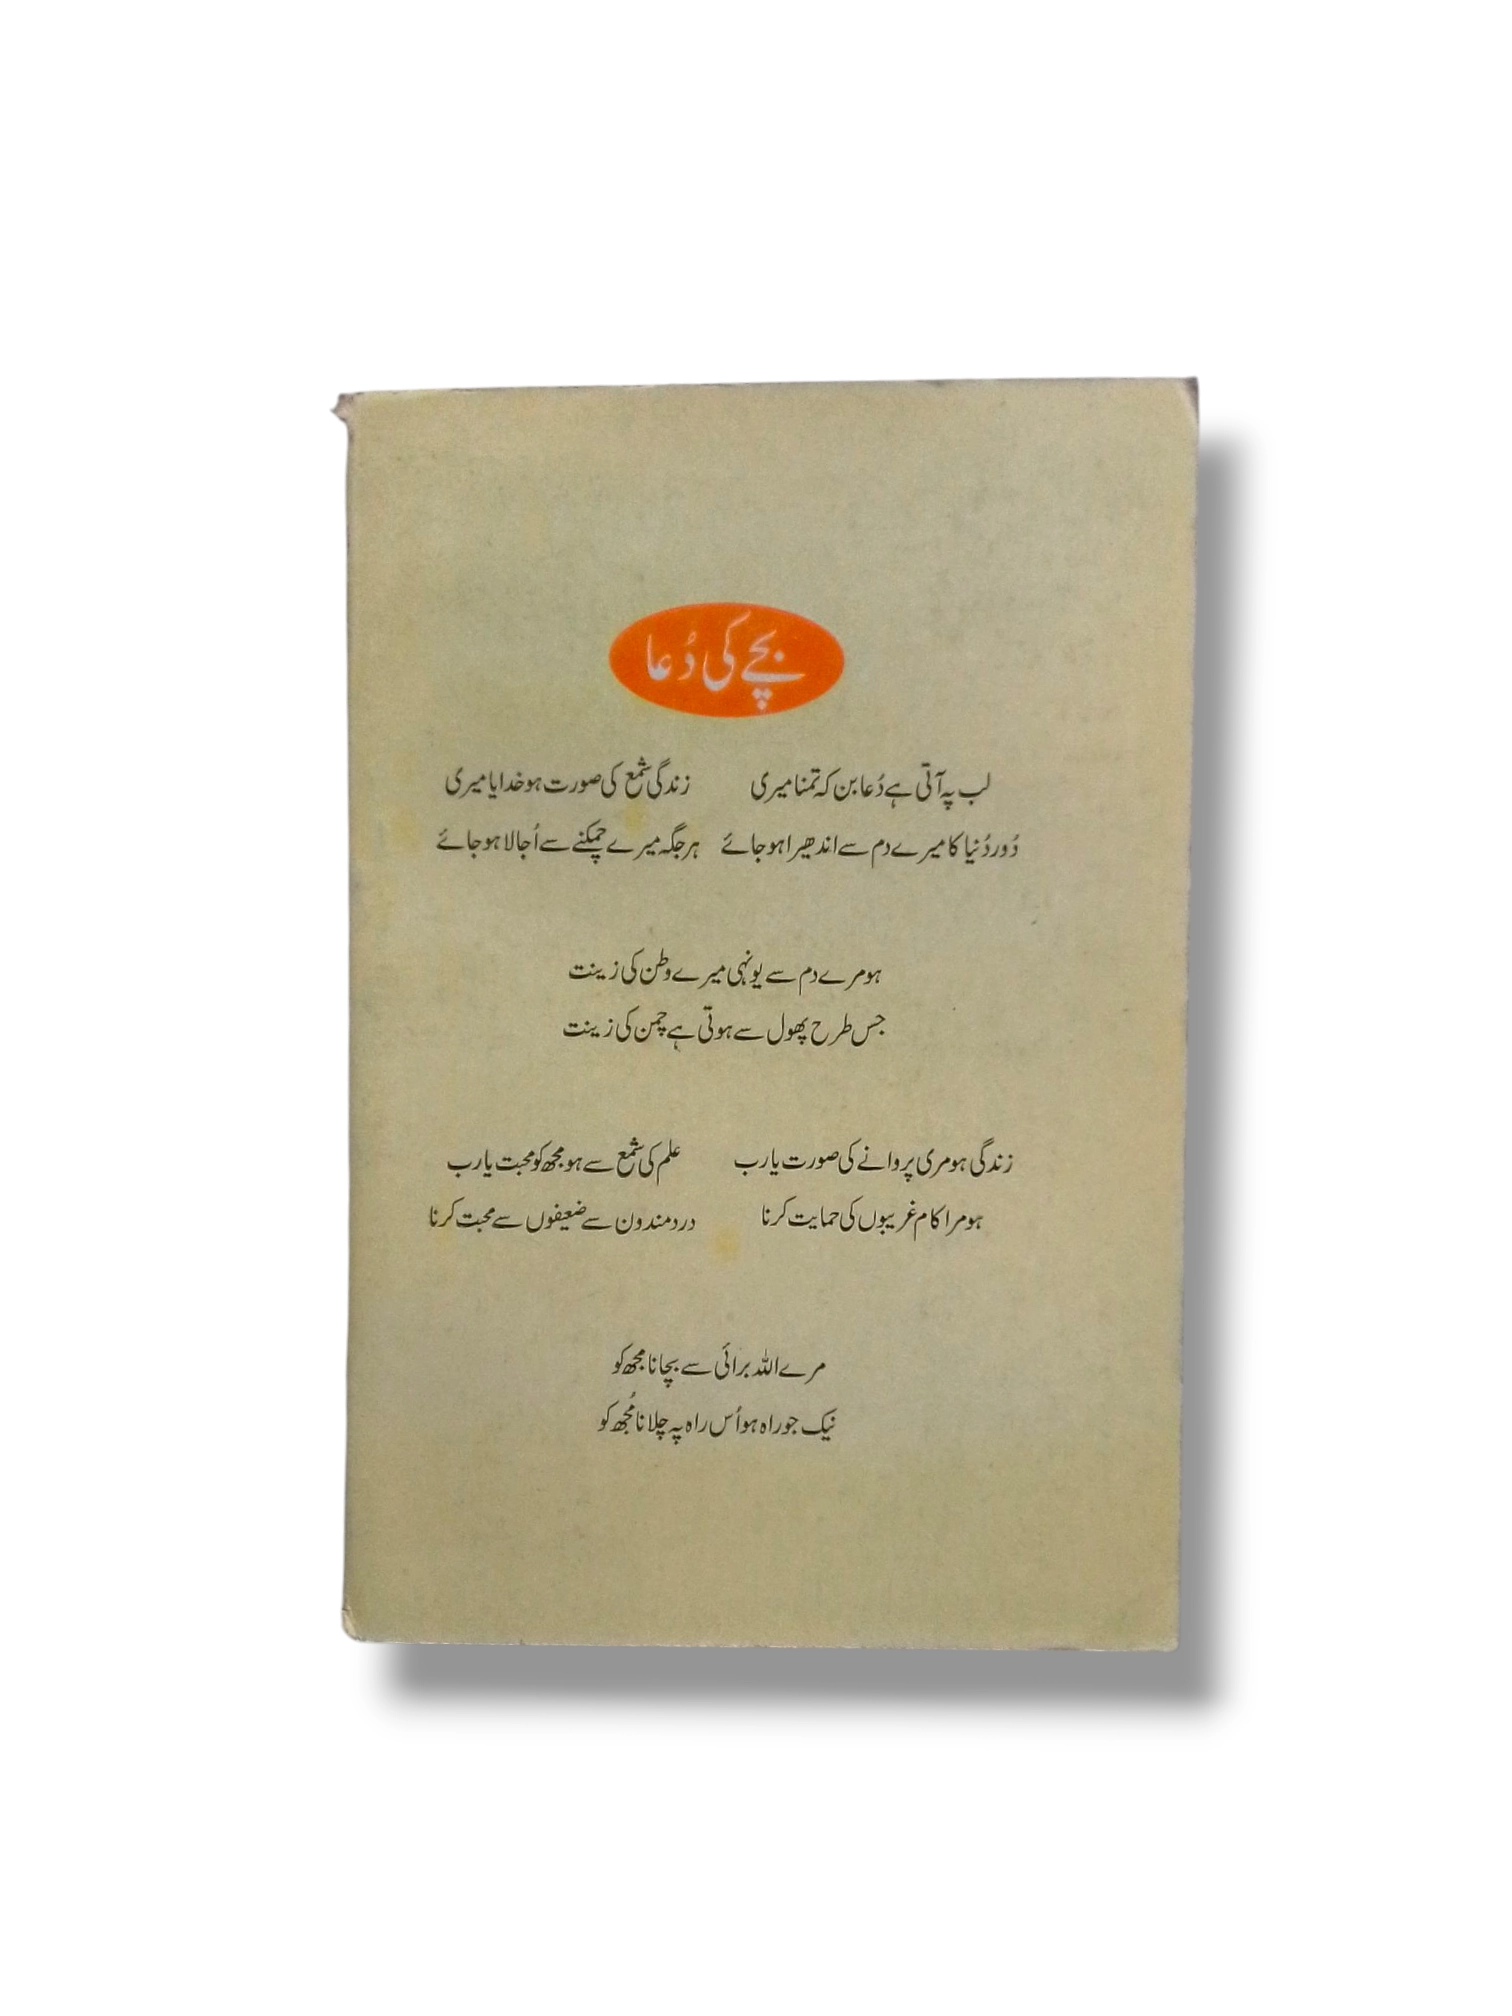 بچے کی دُعا
لب پہ آتی ہے دُعا بن کہ تمنا میری زندگی شمع کی صورت ہو خدایا میری
دُور دُنیا کا میرے دم سے اندھیرا ہو جائے ہر جگہ میرے چمکنے سے اُجالا ہو جائے
ہو مرے دم سے یونہی میرے وطن کی زینت
جس طرح پھول سے ہوتی ہے چمن کی زینت
زندگی ہو مری پروانے کی صورت یارب علم کی شمع سے ہو مجھ کو محبت یارب
ہو مرا کام غریبوں کی حمایت کرنا دردمندون سے ضعیفوں سے محبت کرنا
مرے اللہ برائی سے بچانا مجھ کو
نیک جو راہ ہو اُس راہ پہ چلانا مُجھ کو